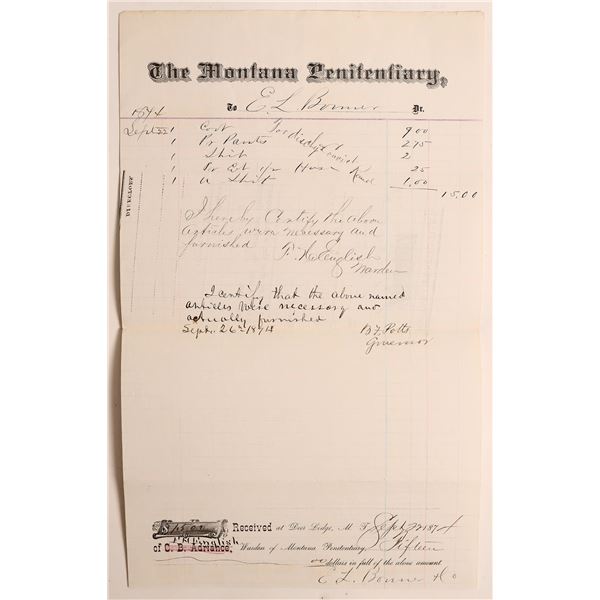 The Montana Penitentiary,
1874 To E. L. Bonner Dr.
Sept 22 1 Coat For dischgd 9.00
1 Pr Pants convict 2.75
1 Shirt 2
1 Pr 25
1 U Shirt 1.00
15.00
DIRECTORY
I hereby Certify the above
articles were necessary and
furnished
English
Warden
I certify that the above named
articles were necessary and
actually furnished
Sept. 26th 1874 B. F. Potts
Governor
$15.00 Received at Deer Lodge, M. T. Sept 22 1874
English
of C. B. Adriance, Warden of Montana Penitentiary, Fifteen
00 dollars in full of the above amount
E L Bonner & Co